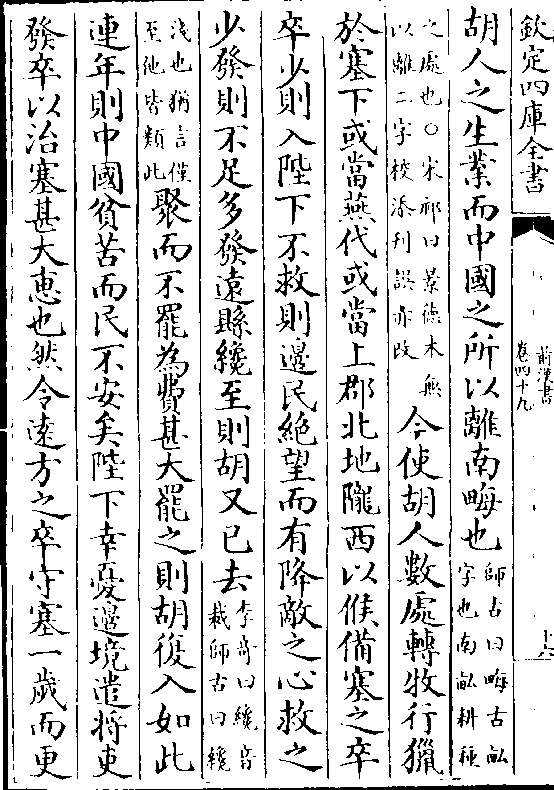 欽定四庫全書
前漢書
卷四十九
十六
胡人之生業而中國之所以離南畮也師古曰畮古畝
字也南畝耕種
之處也○宋祁曰景德本無
以離二字校添刋誤亦改今使胡人數處轉牧行獵
於塞下或當燕代或當上郡北地隴西以候備塞之卒
卒少則入陛下不救則邊民絶望而有降敵之心救之
少發則不足多發遠縣纔至則胡又已去李奇曰纔音
裁師古曰纔
淺也猶言僅
至他皆類此聚而不罷為費甚大罷之則胡復入如此
連年則中國貧苦而民不安矣陛下幸憂邊境遣將吏
發卒以治塞甚大惠也然令遠方之卒守塞一歲而更